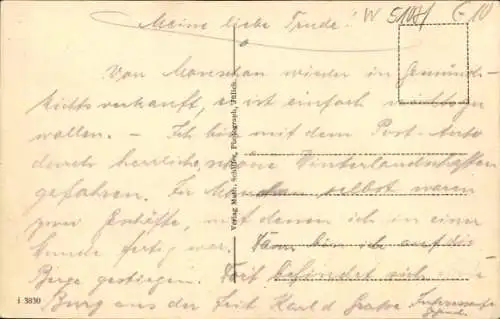 Meine liebe Trude! W 510/1 G 10
Von Monschau wieder in Gemünd
verkauft, es ist einfach
wollen. – Ich bin mit dem Post-Auto
durch herrliche, schöne Winterlandschaften
gefahren. In Monschau selbst waren
zwei Geschäfte, mit denen ich in einer
Stunde fertig war. Dann bin ich auf die
Berge gestiegen. Dort befindet sich eine
Burg aus der Zeit Karl d. Große
Verlag Math. Schiffer, Photograph, Jülich.
i 3830